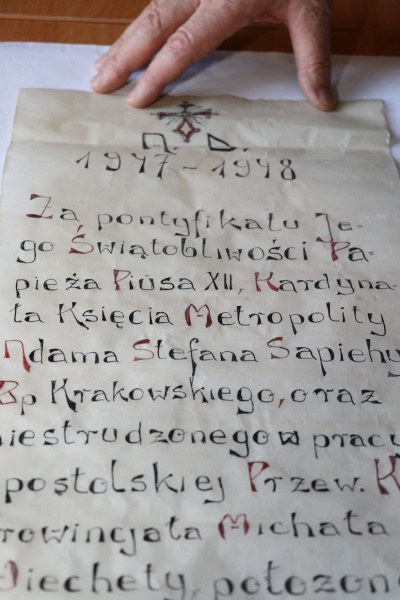 A. D.
1947-1948
Za pontyfikatu Je-
go Świątobliwości Pa-
pieża Piusa XII, Kardyna-
ła Księcia Metropolity
Adama Stefana Sapiehy
Bp Krakowskiego, oraz
niestrudzonego w pracy
postolskiej Przew. K
rowincjała Michała
Wiechety, położono